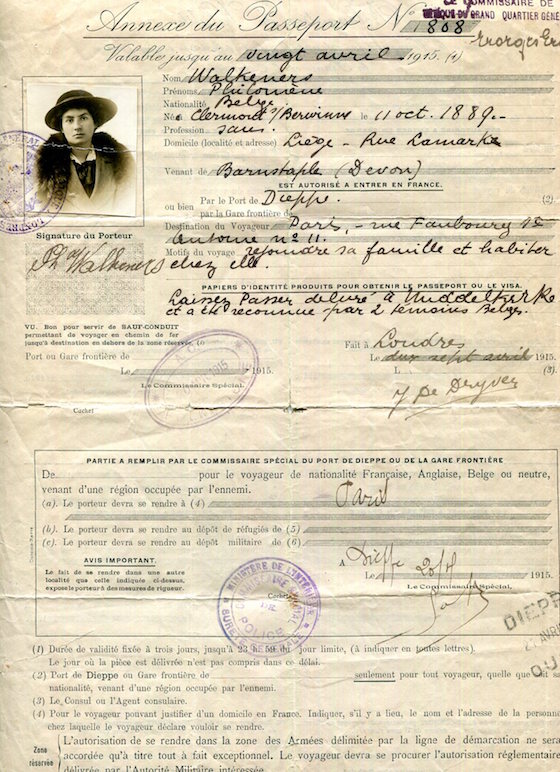 LE COMMISSAIRE DE
GRAND QUARTIER GÉNÉ
Annexe du Passeport N° 1808
Valable jusqu'au vingt avril 1915. (1)
Nom Walkeners
Prénoms Philomène
Nationalité Belge
Né à Clermont s/ Berwinne le 11 oct. 1889.-
Profession sans.
Domicile (localité et adresse) Liège - Rue Lamarke
Venant de Barnstaple (Devon)
EST AUTORISÉ A ENTRER EN FRANCE.
Par le Port de Dieppe. (2).
ou bien
par la Gare frontière de
Destination du Voyageur Paris, - rue Faubourg St
Antoine n° 11.
Motifs du voyage rejoindre sa famille et habiter
chez elle.
Signature du Porteur
Ph Walkeners
PAPIERS D'IDENTITÉ PRODUITS POUR OBTENIR LE PASSEPORT OU LE VISA.
Laissez Passer délivré à Middelkerke
et a été reconnue par 2 témoins Belges.
VU. Bon pour servir de SAUF-CONDUIT
permettant de voyager en chemin de fer
jusqu'à destination en dehors de la zone réservée.
Port ou Gare frontière de
Le 1915.
Le Commissaire Spécial.
Cachet
Fait à Londres
Le dix sept avril 1915.
L (3).
J De Dryver
PARTIE A REMPLIR PAR LE COMMISSAIRE SPÉCIAL DU PORT DE DIEPPE OU DE LA GARE FRONTIÈRE
De pour le voyageur de nationalité Française, Anglaise, Belge ou neutre,
venant d'une région occupée par l'ennemi.
(a). Le porteur devra se rendre à (4) Paris
(b). Le porteur devra se rendre au dépôt de réfugiés de (5)
(c). Le porteur devra se rendre au dépôt militaire de (6)
AVIS IMPORTANT.
Le fait de se rendre dans une autre
localité que celle indiquée ci-dessus,
expose le porteur à des mesures de rigueur.
A Dieppe
Le 20/4 1915.
Le Commissaire Spécial.
Cachet
MINISTÈRE DE L'INTÉRIEUR
COMMISSAIRE SPÉCIAL
DE
POLICE
SURETÉ GÉNÉRALE
DIEPPE
AVRIL
(1) Durée de validité fixée à trois jours, jusqu'à 23 h. 59 du jour limite, (à indiquer en toutes lettres).
Le jour où la pièce est délivrée n'est pas compris dans ce délai.
(2) Port de Dieppe ou Gare frontière de seulement pour tout voyageur, quelle que soit sa
nationalité, venant d'une région occupée par l'ennemi.
(3) Le Consul ou l'Agent consulaire.
(4) Pour le voyageur pouvant justifier d'un domicile en France. Indiquer, s'il y a lieu, le nom et l'adresse de la personne
chez laquelle le voyageur déclare vouloir se rendre.
Zone
réservée
L'autorisation de se rendre dans la zone des Armées délimitée par la ligne de démarcation ne sera
accordée qu'à titre tout à fait exceptionnel. Le voyageur devra se procurer l'autorisation réglementaire
délivrée par l'Autorité Militaire intéressée.